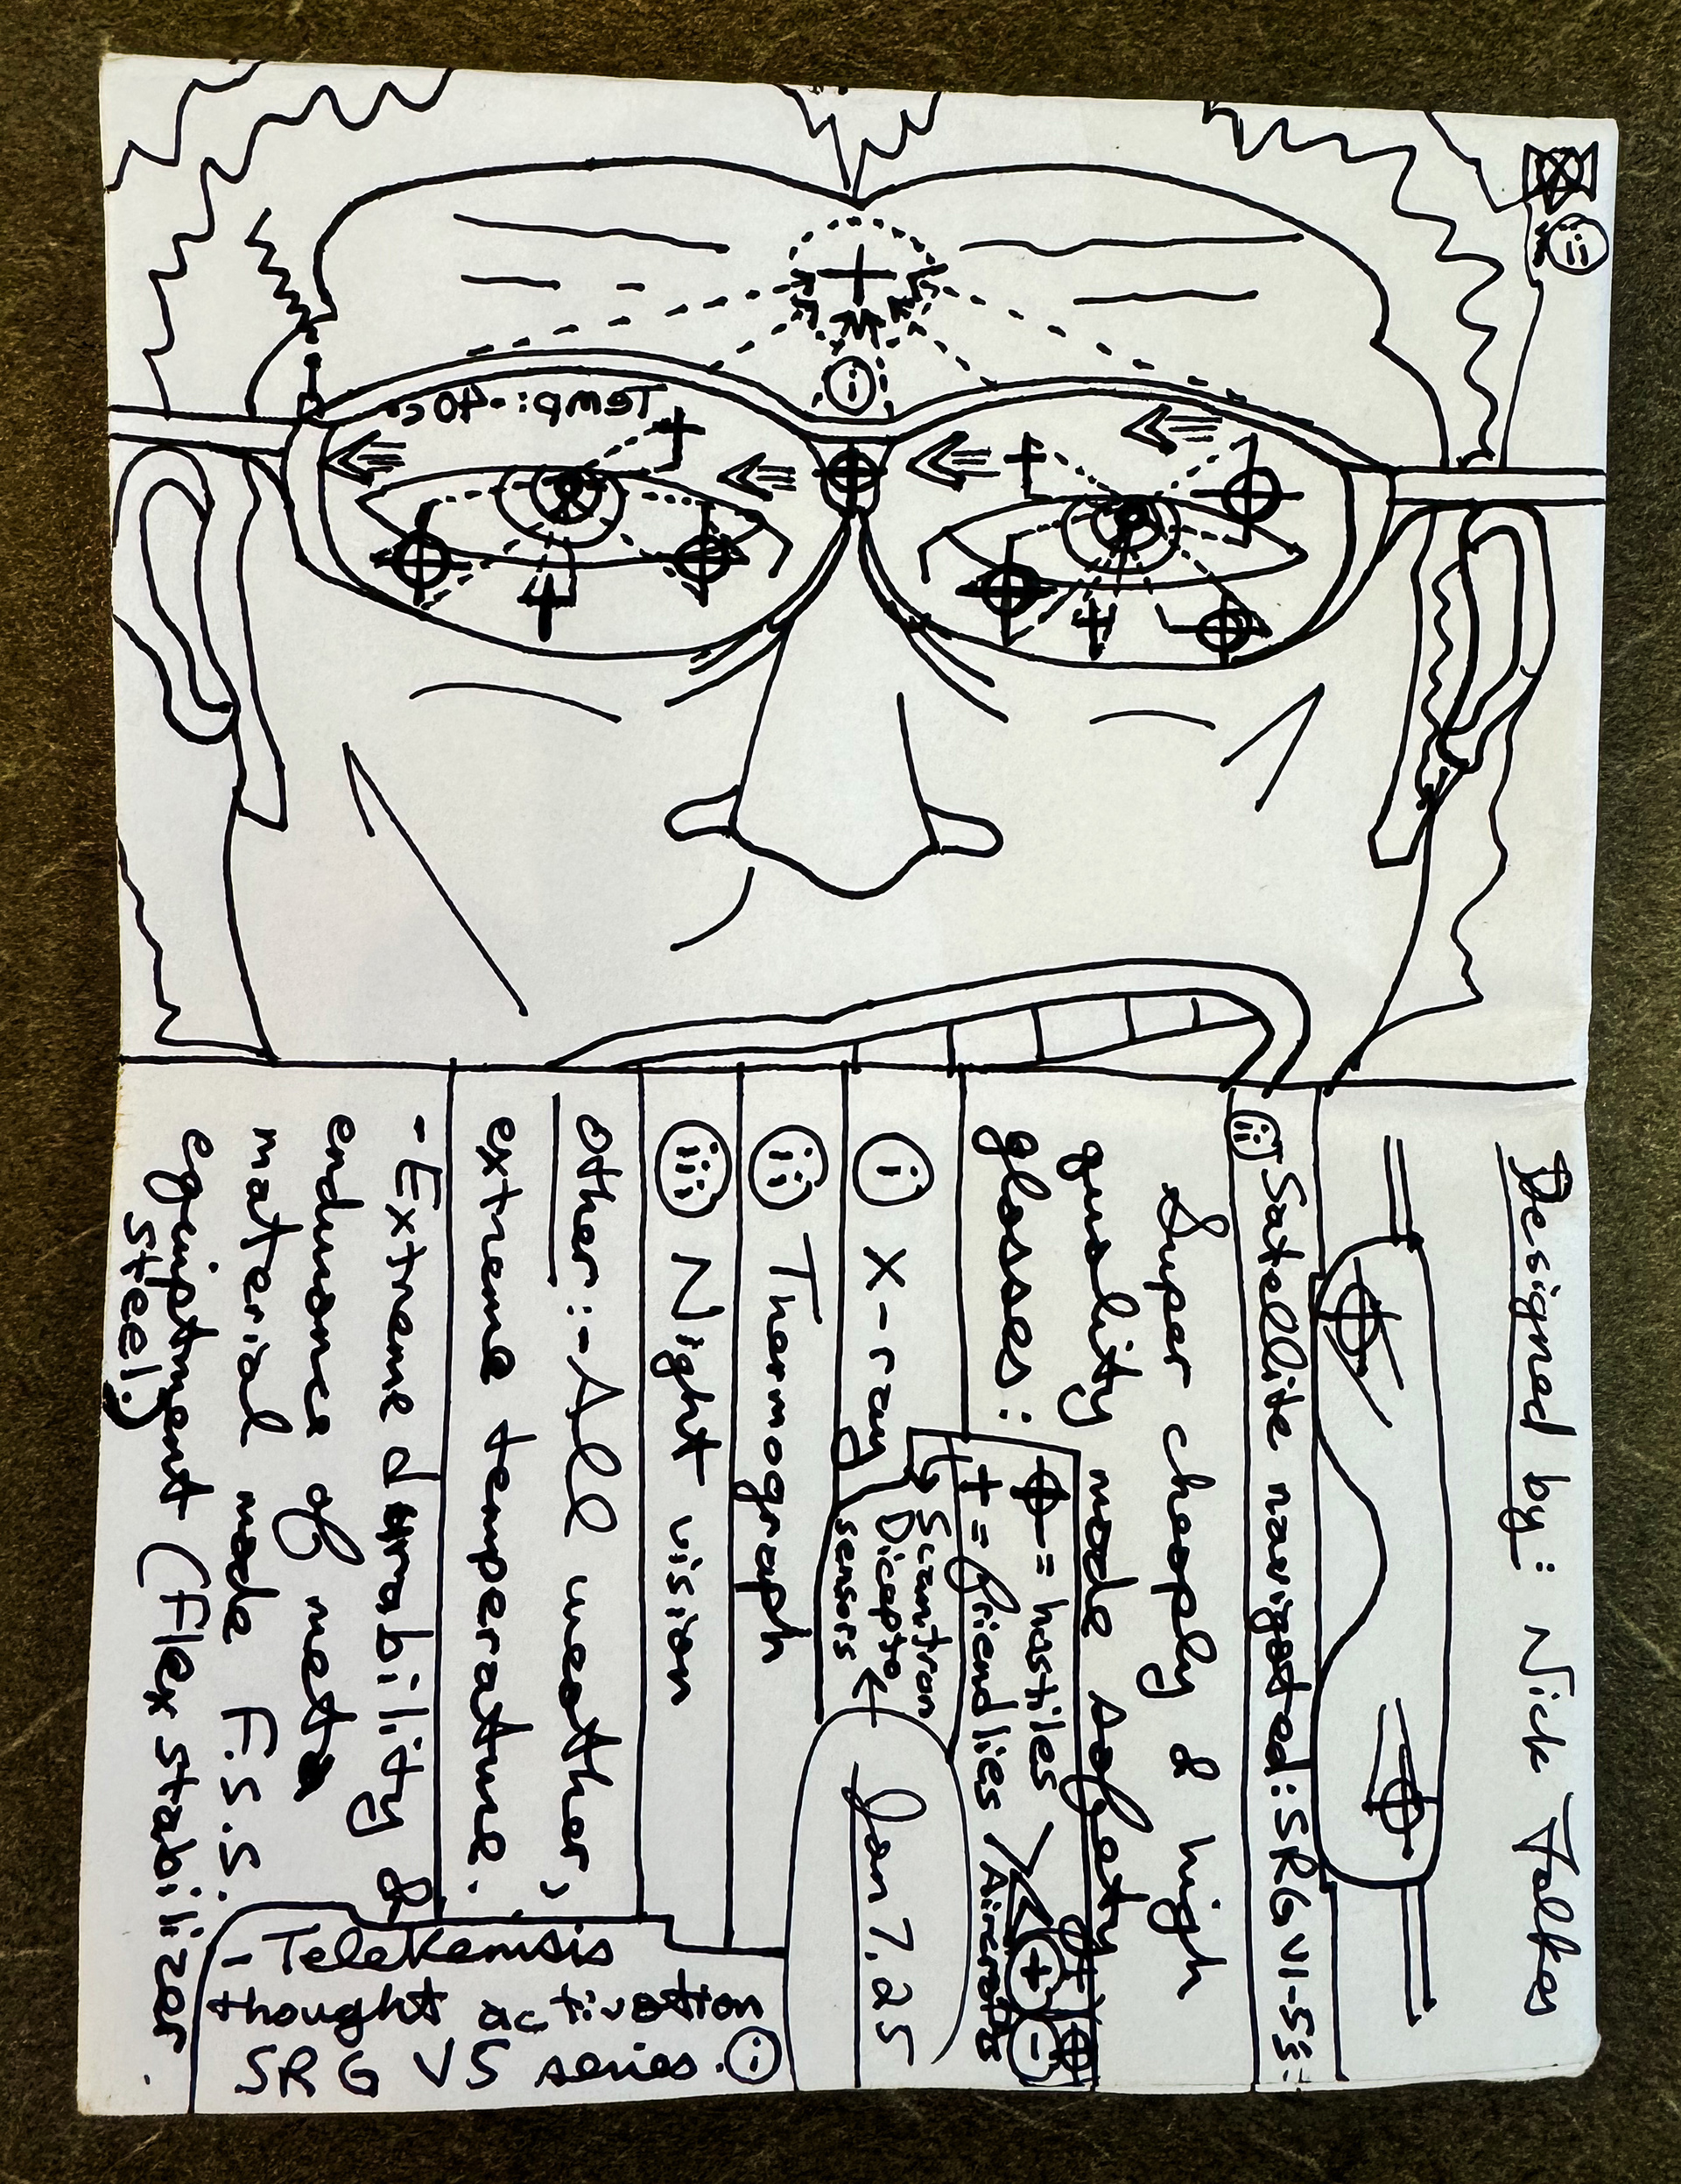 Temp: -40c
i
ii
Designed by: Nick Folkes
iii Satellite navigated: SRG V1-5
Super cheaply & high
quality made safety
glasses:
= hostiles
+ = friendlies
Aircrafts
+
-
i X-ray
Scantron
Dicepto
sensors
Jan 7.25
ii Thermograph
iii Night vision
Other: - All weather,
extreme temperature.
- Extreme durability &
endurance of met
material made F.S.S.
equiptment (Flex stabilizer
steel)
- Telekenisis
thought activation
SRG V5 series. i